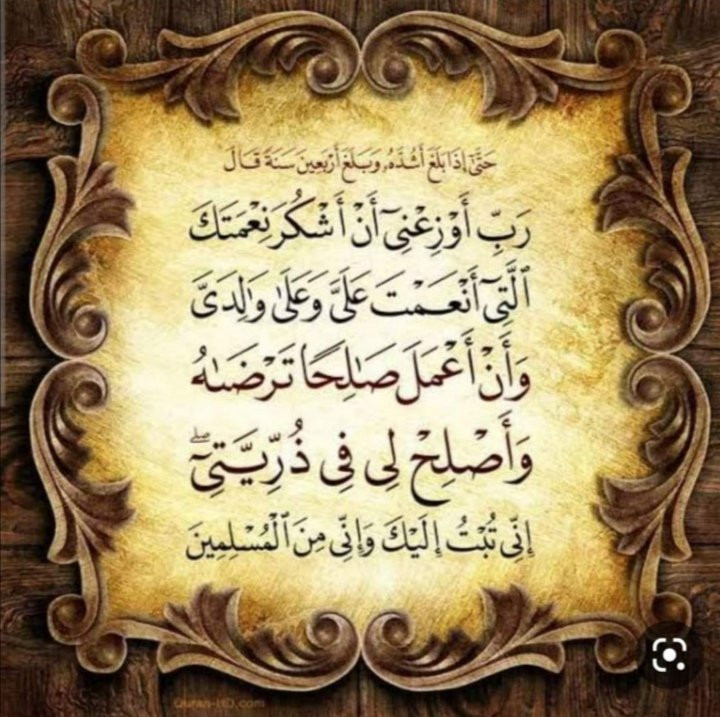 حَتَّىٰٓ إِذَا بَلَغَ أَشُدَّهُۥ وَبَلَغَ أَرْبَعِينَ سَنَةً قَالَ
رَبِّ أَوْزِعْنِىٓ أَنْ أَشْكُرَ نِعْمَتَكَ
ٱلَّتِىٓ أَنْعَمْتَ عَلَىَّ وَعَلَىٰ وَٰلِدَىَّ
وَأَنْ أَعْمَلَ صَٰلِحًا تَرْضَىٰهُ
وَأَصْلِحْ لِى فِى ذُرِّيَّتِىٓ ۖ
إِنِّى تُبْتُ إِلَيْكَ وَإِنِّى مِنَ ٱلْمُسْلِمِينَ
Quran-HD.com